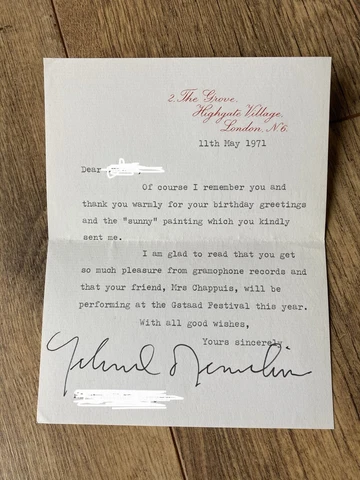 2, The Grove,
Highgate Village,
London, N.6.
11th May 1971
Dear
Of course I remember you and
thank you warmly for your birthday greetings
and the "sunny" painting which you kindly
sent me.
I am glad to read that you get
so much pleasure from gramophone records and
that your friend, Mrs Chappuis, will be
performing at the Gstaad Festival this year.
With all good wishes,
Yours sincerely,
Yehudi Menuhin